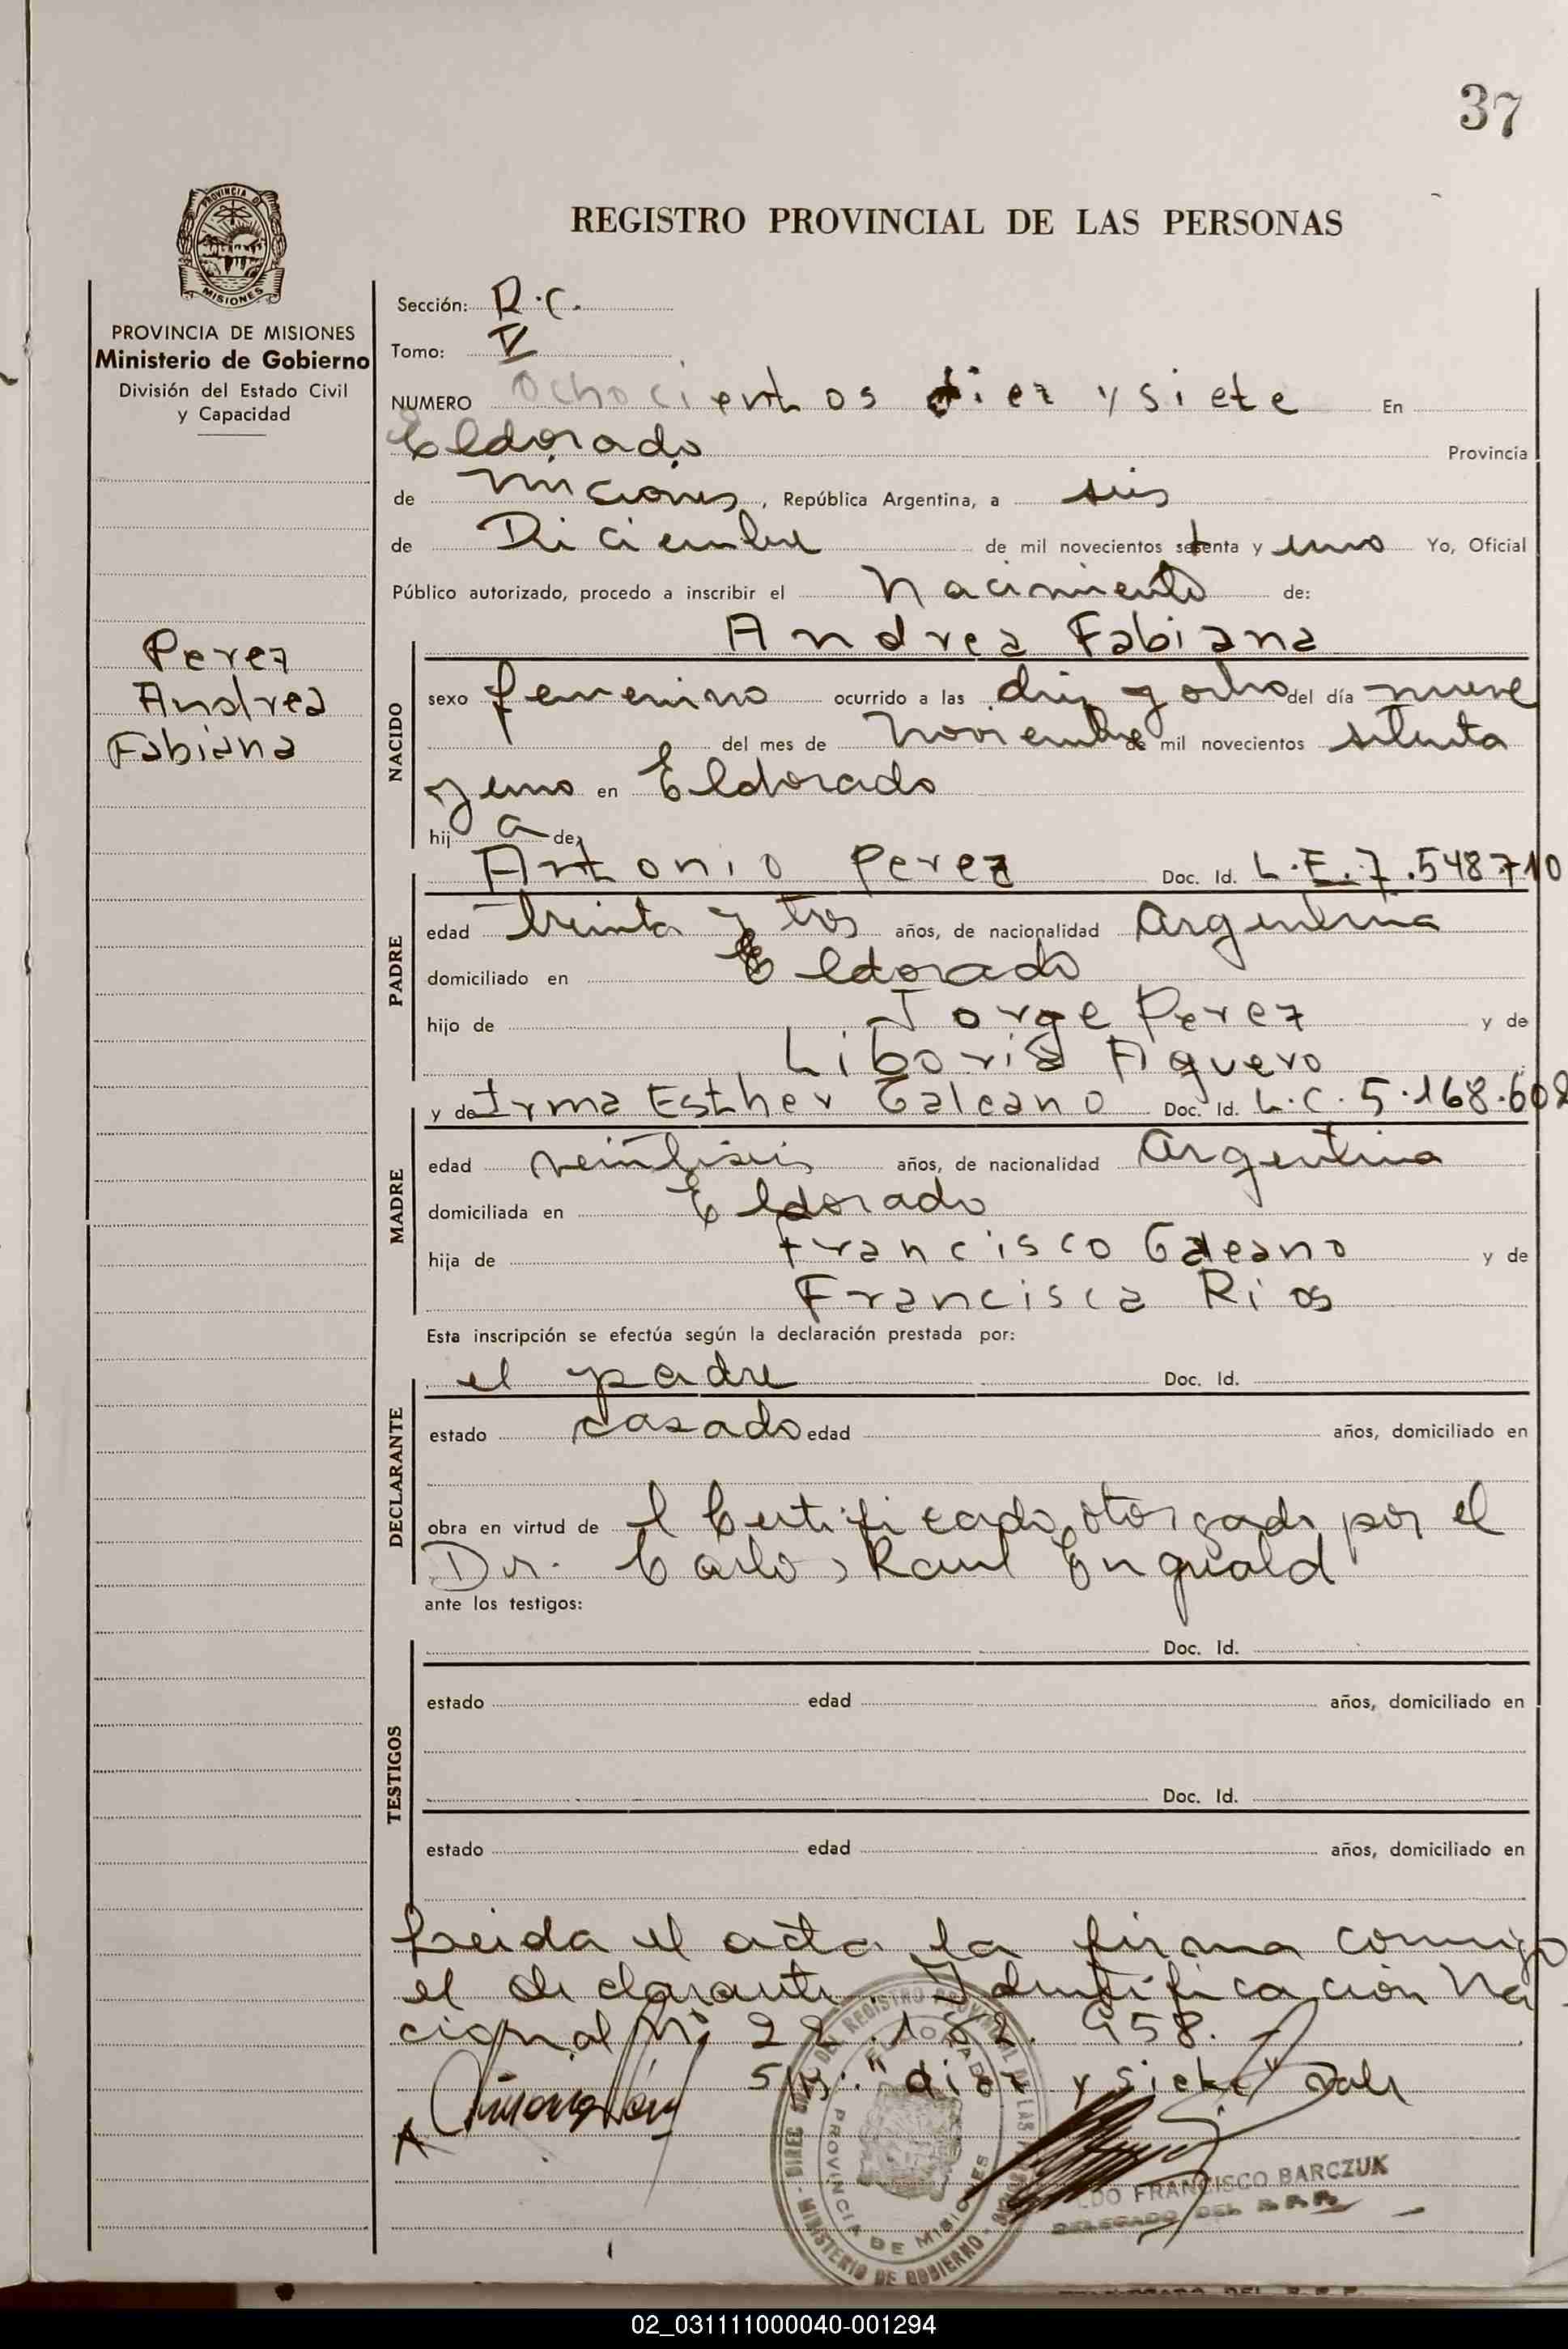 37
PROVINCIA DE
MISIONES
PROVINCIA DE MISIONES
Ministerio de Gobierno
División del Estado Civil
y Capacidad
Perez
Andrea
Fabiana
REGISTRO PROVINCIAL DE LAS PERSONAS
Sección: R.C.
Tomo: IV
NUMERO Ochocientos diez y siete En
Eldorado Provincia
de Misiones, República Argentina, a seis
de Diciembre de mil novecientos setenta y uno Yo, Oficial
Público autorizado, procedo a inscribir el Nacimiento de:
NACIDO
Andrea Fabiana
sexo femenino ocurrido a las diez y ocho del día nueve
del mes de Noviembre de mil novecientos setenta
y uno en Eldorado
hij a de
PADRE
Antonio Perez Doc. Id. L.E. 7.548710
edad treinta y tres años, de nacionalidad Argentina
domiciliado en Eldorado
hijo de Jorge Perez y de
Liboria Aguero
MADRE
y de Irma Esther Galeano Doc. Id. L.C. 5.168.608
edad veintiseis años, de nacionalidad Argentina
domiciliada en Eldorado
hija de Francisco Galeano y de
Francisca Rios
Esta inscripción se efectúa según la declaración prestada por:
DECLARANTE
el padre Doc. Id.
estado casado edad años, domiciliado en
obra en virtud de el Certificado otorgado por el
Dr. Carlos Raul Enguald
ante los testigos:
TESTIGOS
Doc. Id.
estado edad años, domiciliado en
Doc. Id.
estado edad años, domiciliado en
Leida el acta la firma conmigo
el declarante. Identificación Na
cional Nº 22.182.958.
S/R: "diez y siete" vale
DO FRANCISCO BARCZUK
DELEGADO DEL R.P.P.
PROVINCIA DE MISIONES
MINISTERIO DE GOBIERNO
02_031111000040-001294